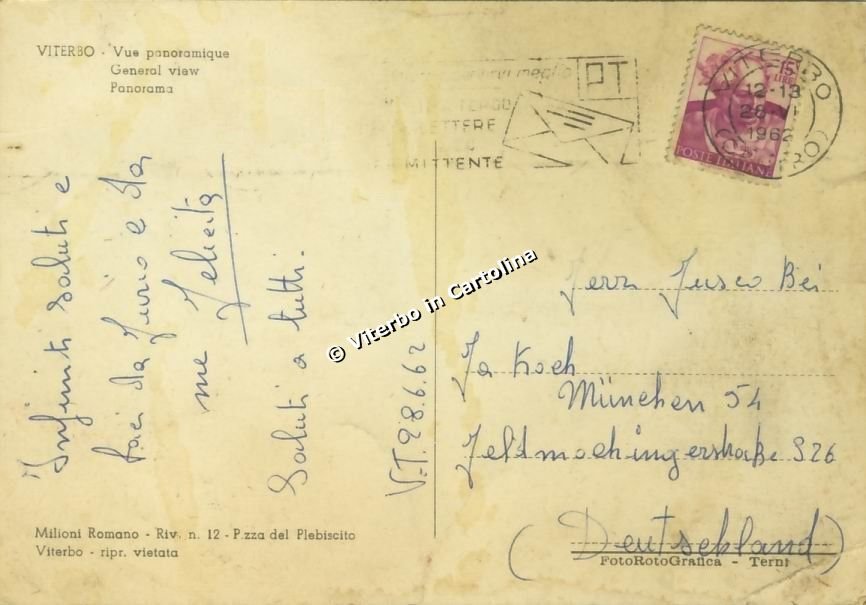 VITERBO - Vue panoramique
General view
Panorama
PT
LETTERE
MITTENTE
VITERBO
12-13
1962
5
LIRE
POSTE ITALIANE
Infiniti saluti e
baci da Jurio e da
me Felicita
Saluti a tutti.
V.T. 28.6.62
© Viterbo in Cartolina
Herr Jusco Bei
Ja Koch
München 54
Feldmochingerstraße 326
(Deutschland)
Milioni Romano - Riv. n. 12 - P.zza del Plebiscito
Viterbo - ripr. vietata
FotoRotoGrafica - Terni